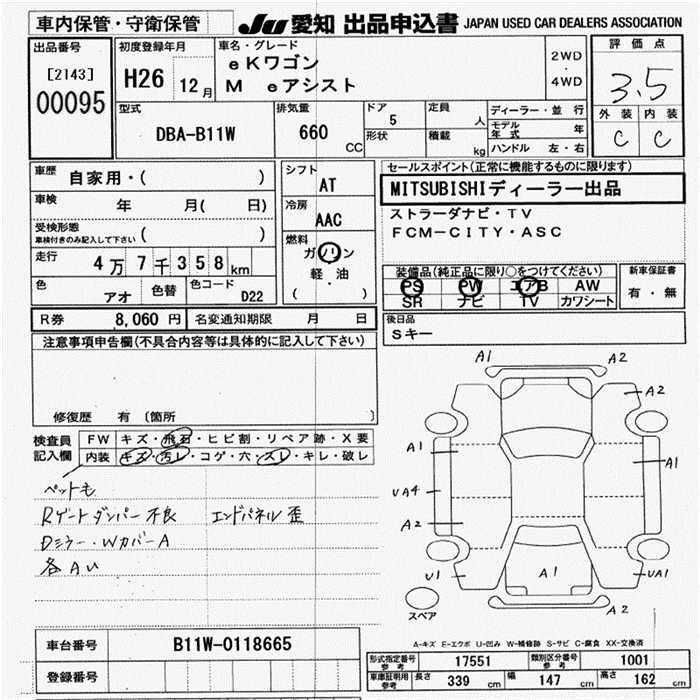 車内保管・守衛保管
JU 愛知 出品申込書 JAPAN USED CAR DEALERS ASSOCIATION
出品番号
[2143]
00095
初度登録年月
H26 12月
車名・グレード
eKワゴン
M eアシスト
2WD
・
4WD
評価点
3.5
外装 内装
C C
型式
DBA-B11W
排気量
660 CC
ドア
5
形状
定員
人
積載
kg
ディーラー・並行
モデル年式 年
ハンドル 左・右
車歴 自家用・( )
車検 年 月( 日)
受検形態
車検付きのみ記入して下さい ( )
走行 4万7千358km
色 アオ 色替 色コード D22
シフト
AT
冷房
AAC
燃料
ガソリン
軽・油
( )
セールスポイント(正常に機能するものに限ります)
MITSUBISHIディーラー出品
ストラーダナビ・TV
FCM-CITY・ASC
装備品(純正品に限り○をつけてください)
PS PW エアB AW
SR ナビ TV カワシート
新車保証書
有・無
R券 8,060円 名変通知期限 月 日
後日品
Sキー
注意事項申告欄(不具合内容等は具体的に記入して下さい)
修復歴 有 〔箇所 〕
検査員記入欄
FW キズ・飛石・ヒビ割・リペア跡・X要
内装 キズ・汚レ・コゲ・穴・スレ・キレ・破レ
ペットも
Rゲートダンパー不良 エンドパネル歪
Dミラー・WカバーA
各AU
A1 A2
A2
A1 A1
UA4
A2
U1 A1 UA1
スペア
A2
A-キズ E-エクボ U-凹み W-補修跡 S-サビ C-腐食 XX-交換済
車台番号 B11W-0118665
登録番号
形式指定番号参考 17551 類別区分番号参考 1001
車庫証明用参考 長さ 339 cm 幅 147 cm 高さ 162 cm